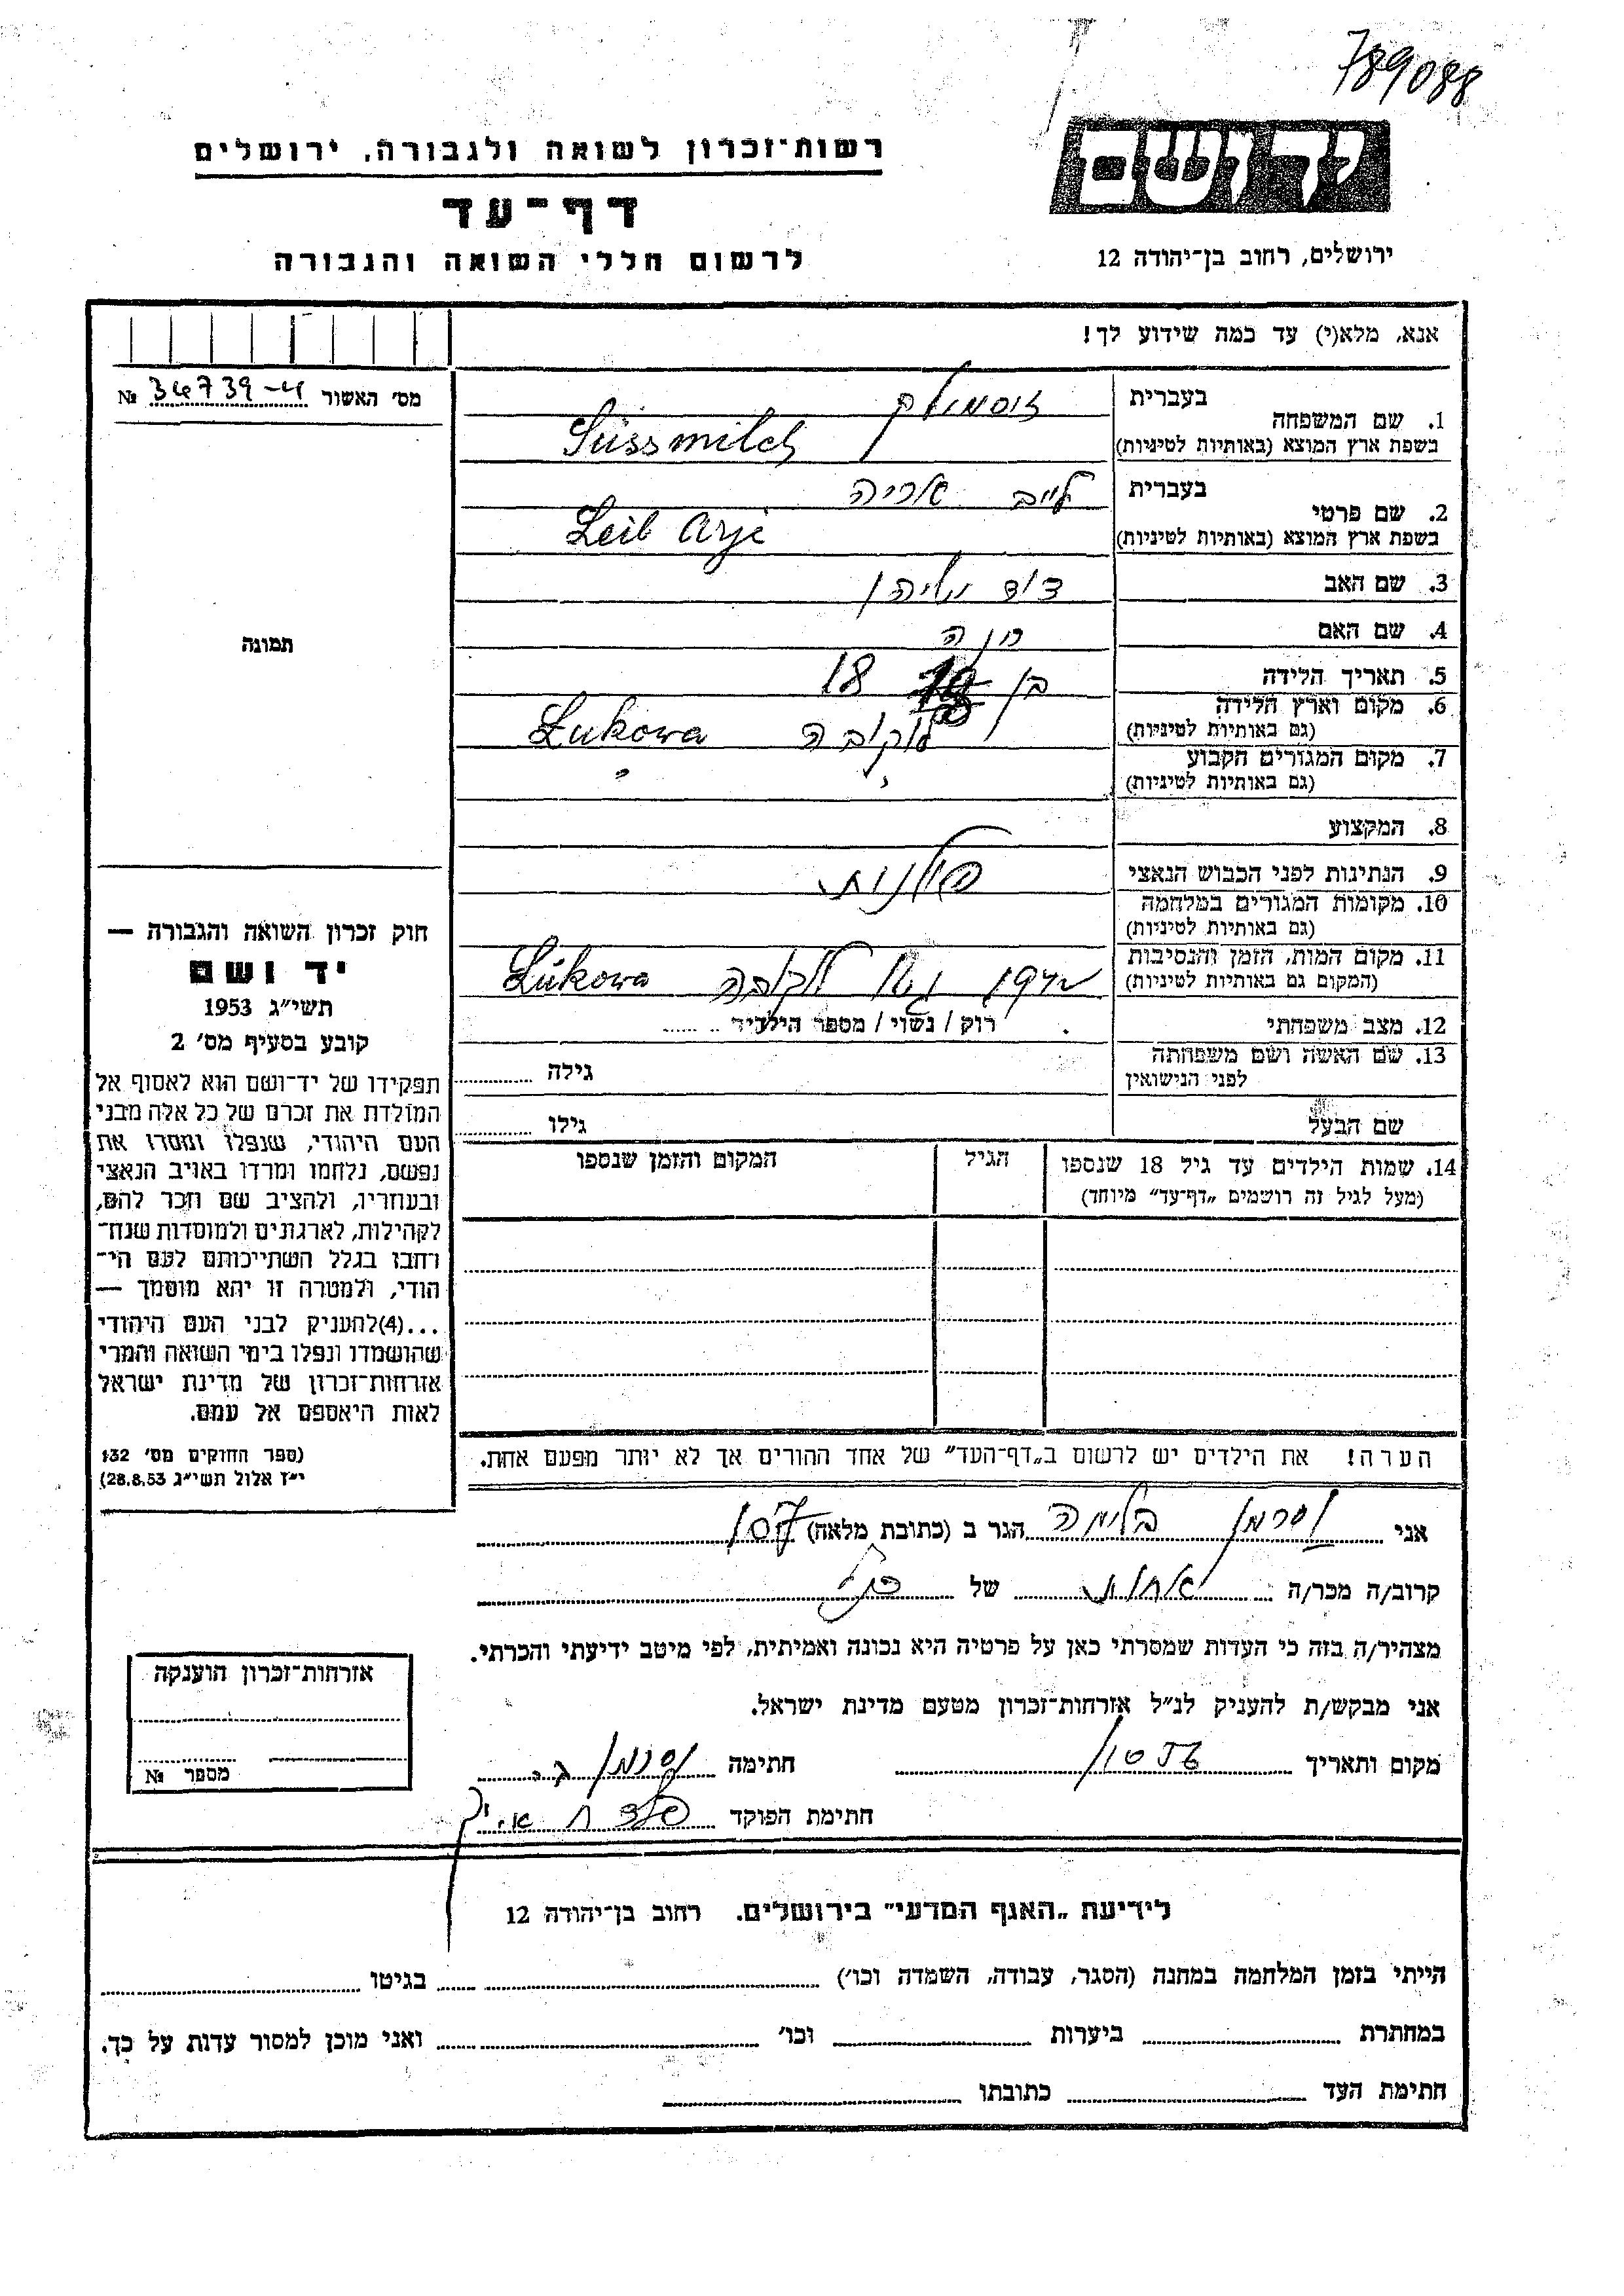 789088
יד ושם
רשות־זכרון לשואה ולגבורה, ירושלים
דף־עד
לרשום חללי השואה והגבורה
ירושלים, רחוב בן־יהודה 12
אנא, מלא(י) עד כמה שידוע לך!
מס׳ האשור 34739-4 №
1. שם המשפחה
בעברית זוסמילך
בשפת ארץ המוצא (באותיות לטיניות) Süssmilch
2. שם פרטי
בעברית לייב אריה
בשפת ארץ המוצא (באותיות לטיניות) Leib Arje
3. שם האב דוד
4. שם האם
5. תאריך הלידה בן 18
6. מקום וארץ הלידה
(גם באותיות לטיניות) לוקובה Łukowa
7. מקום המגורים הקבוע
(גם באותיות לטיניות)
8. המקצוע
9. הנתינות לפני הכבוש הנאצי פולנית
10. מקומות המגורים במלחמה
(גם באותיות לטיניות)
11. מקום המות, הזמן והנסיבות
(המקום גם באותיות לטיניות) לוקובה Łukowa
12. מצב משפחתי רוק / נשוי / מספר הילדים
13. שם האשה ושם משפחתה
לפני הנישואין גילה
שם הבעל גילו
14. שמות הילדים עד גיל 18 שנספו
(מעל לגיל זה רושמים „דף־עד” מיוחד)
הגיל
המקום והזמן שנספו
הערה! את הילדים יש לרשום ב„דף־העד” של אחד ההורים אך לא יותר מפעם אחת.
תמונה
חוק זכרון השואה והגבורה —
יד ושם
תשי״ג 1953
קובע בסעיף מס׳ 2
תפקידו של יד־ושם הוא לאסוף אל
המולדת את זכרם של כל אלה מבני
העם היהודי, שנפלו ומסרו את
נפשם, נלחמו ומרדו באויב הנאצי
ובעוזריו, ולהציב שם וזכר להם,
לקהילות, לארגונים ולמוסדות שנח־
רבו בגלל השתייכותם לעם הי־
הודי, ולמטרה זו יהא מוסמך —
...(4)להעניק לבני העם היהודי
שהושמדו ונפלו בימי השואה והמרי
אזרחות־זכרון של מדינת ישראל
לאות היאספם אל עמם.
(ספר החוקים מס׳ 132
י״ז אלול תשי״ג 28.8.53)
אני וסרמן בלומה הגר ב (כתובת מלאה)
קרוב/ה מכר/ה אחות של
מצהיר/ה בזה כי העדות שמסרתי כאן על פרטיה היא נכונה ואמיתית, לפי מיטב ידיעתי והכרתי.
אני מבקש/ת להעניק לנ״ל אזרחות־זכרון מטעם מדינת ישראל.
מקום ותאריך חתימה וסרמן ב.
חתימת הפוקד
אזרחות־זכרון הוענקה
מספר №
לידיעת „האגף המדעי” בירושלים. רחוב בן־יהודה 12
הייתי בזמן המלחמה במחנה (הסגר, עבודה, השמדה וכו׳) בגיטו
במחתרת ביערות וכו׳ ואני מוכן למסור עדות על כך.
חתימת העד כתובתו